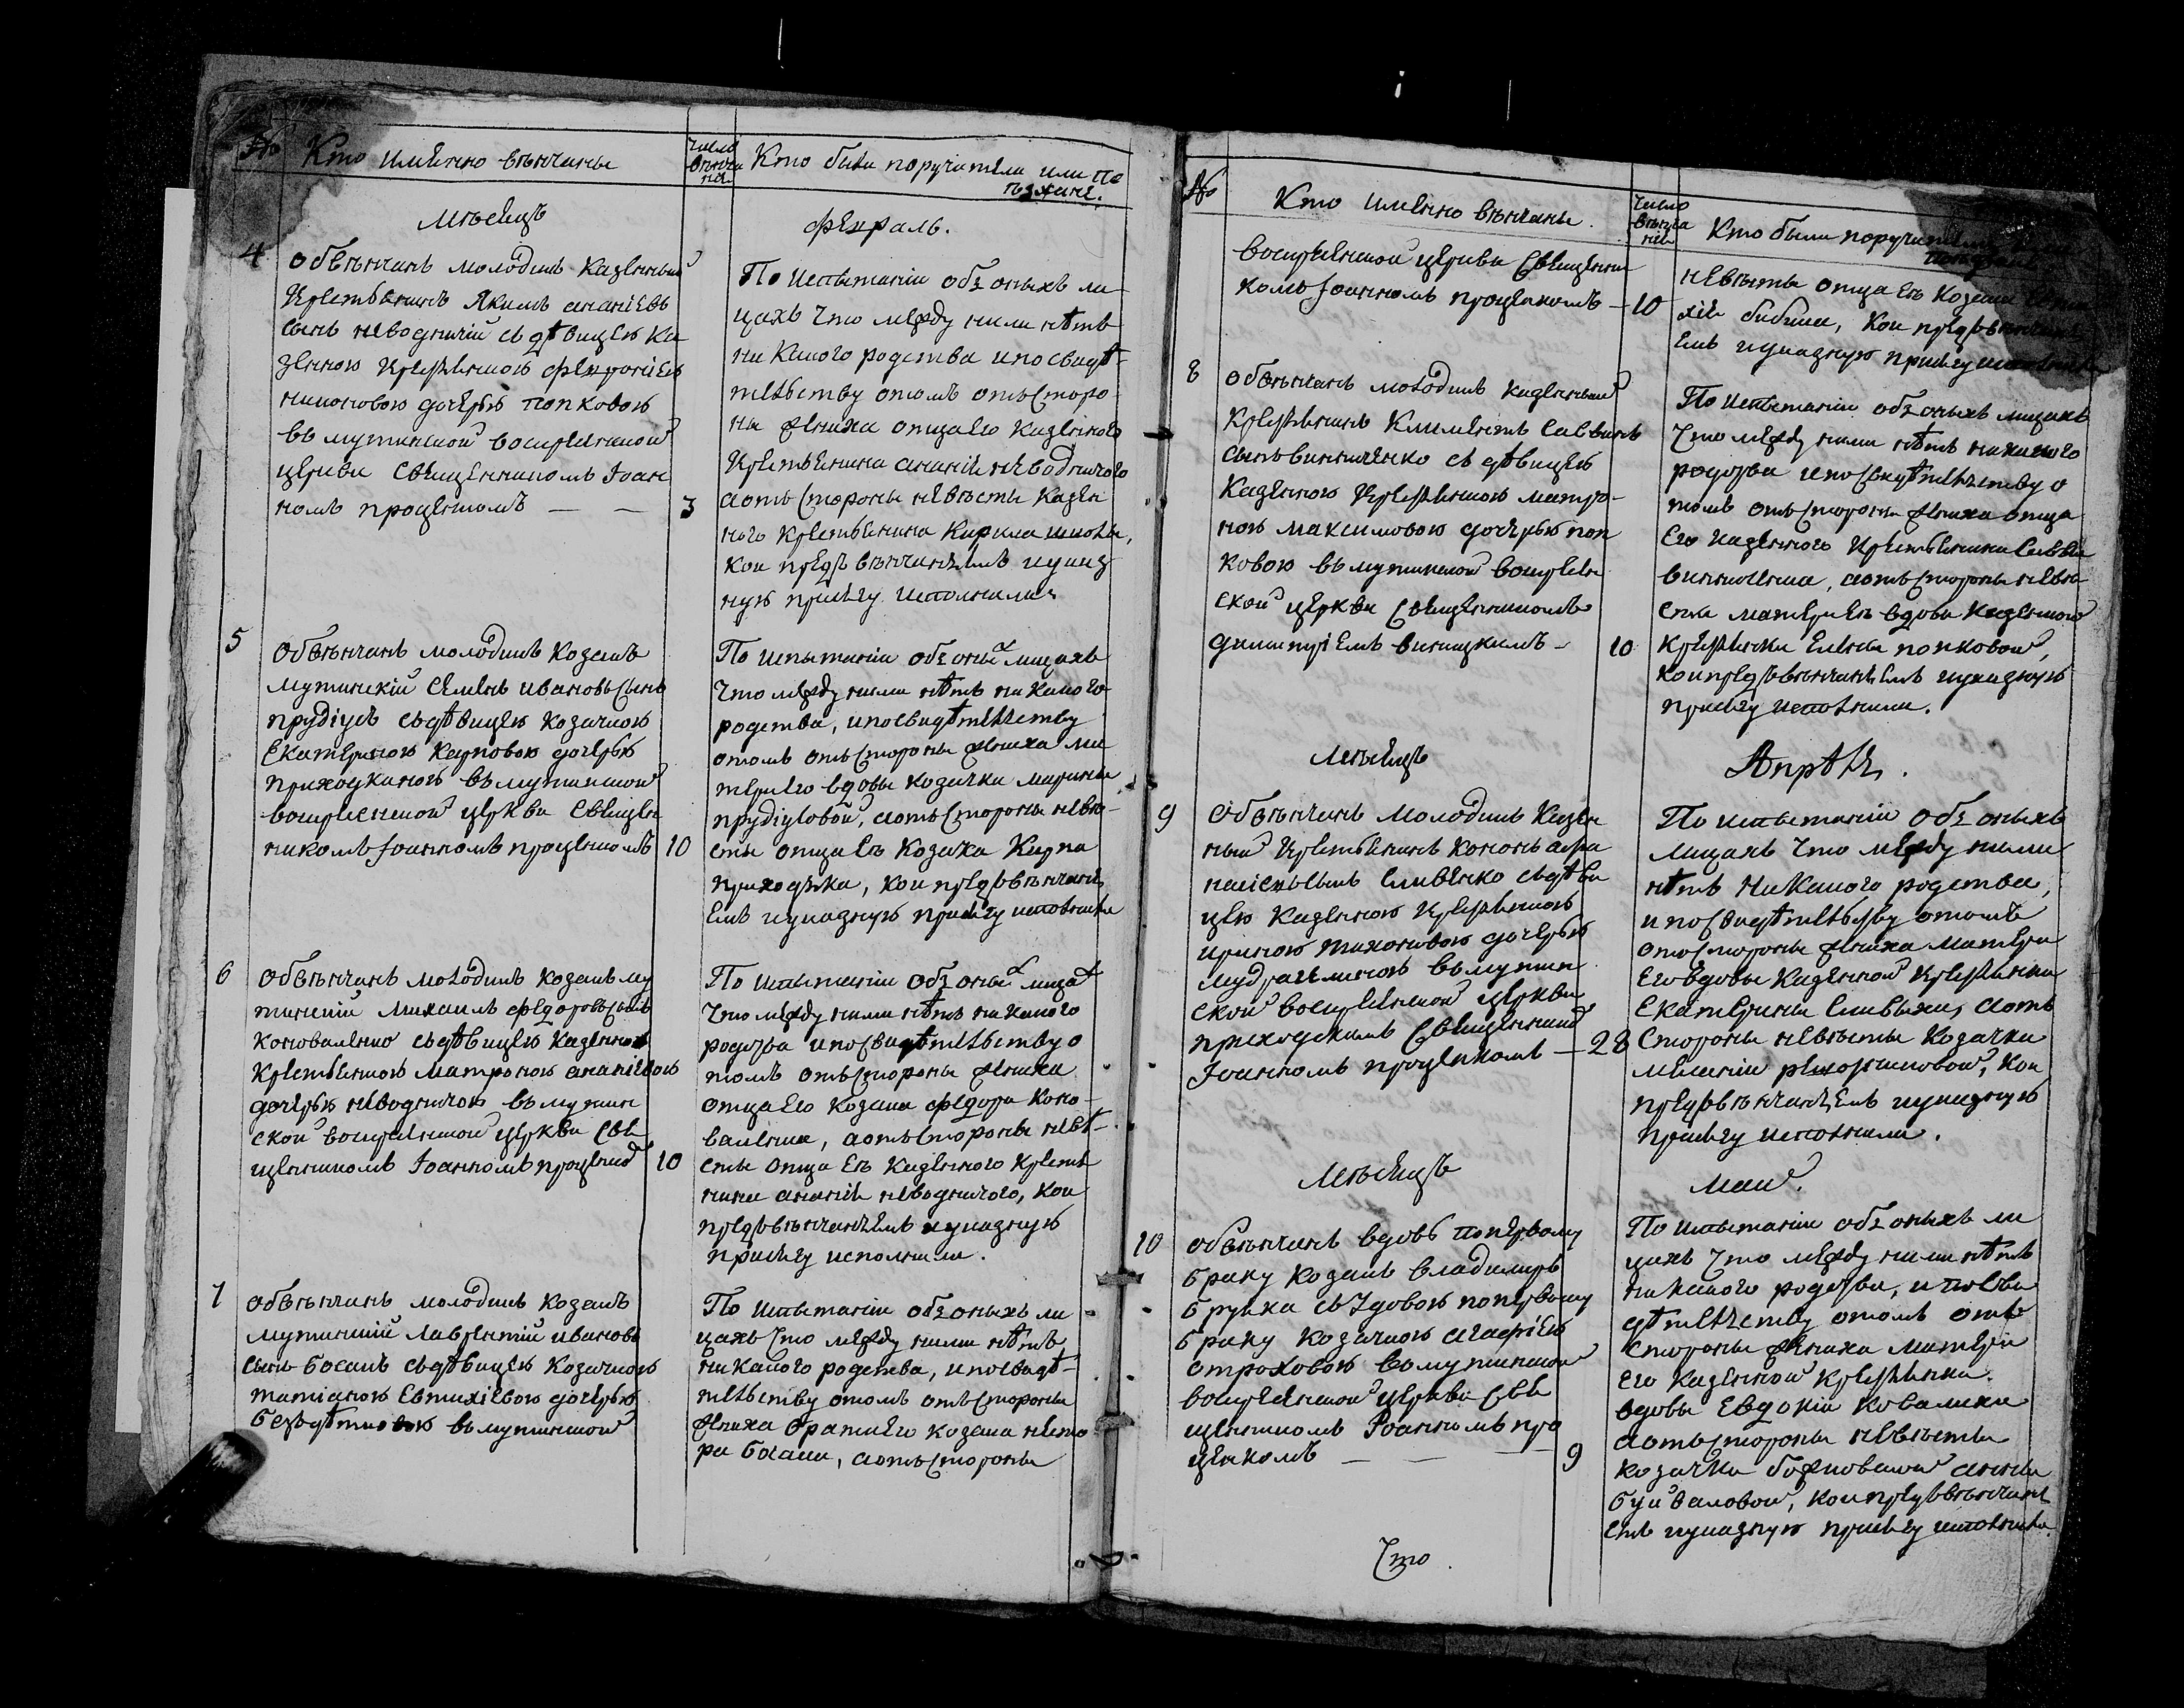 № Кто именно венчаны
число венчания
Кто были поручители или поезжане.
Месяць
Февраль.
4
Обвенчанъ молодикъ казенный
крестьянинъ Якимъ Ананіевъ
сынъ Неводничій съ девицею ка
зенною крестьянкою Февроніею
поповою дочерью Попковою
въ мутинской воскресенской
церкви священникомъ Іоан
номъ Проценкомъ — —
3
По испытаніи объ оныхъ ли
цахъ что между ними нетъ
никакого родства и по свиде
тельству о томъ отъ сторо
ны жениха отца его казенного
крестьянина Ананіи Неводничого
а отъ стороны невесты казен
ного крестьянина Кирила
кои предъ венчаніемъ указ
ную присягу исполнили
5
Обвенчанъ молодикъ козакъ
мутинскій Семенъ Ивановъ сынъ
Прудіусъ съ девицею козачкою
Екатериною Карповою дочерью
Приходкиною въ мутинской
воскресенской церкви священ
никомъ Іоанномъ Проценкомъ
10
По испытаніи объ оныхъ лицахъ
что между ними нетъ никакого
родства, и по свидетельству
о томъ отъ стороны жениха ма
тери его вдовы козачки Марины
Прудіусовой, а отъ стороны неве
сты отца ея козака Карпа
Приходка, кои предъ венчані
емъ указную присягу исполнили
6
Обвенчанъ молодикъ козакъ му
тинскій Михаилъ Федоровъ сынъ
Коноваленко съ девицею казенною
крестьянкою Матроною Ананіевою
дочерью Неводничою въ мутин
ской воскресенской церкви свя
щенникомъ Іоанномъ Проценко
10
По испытаніи объ оныхъ лица
что между ними нетъ никакого
родства и по свидетельству о
томъ отъ стороны жениха
отца его козака Федора Коно
валенка, а отъ стороны неве
сты отца ея казенного кресть
нина Ананіи Неводничого, кои
предъ венчаніемъ указную
присягу исполнили.
7
Обвенчанъ молодикъ козакъ
мутинскій Лаврентій Ивановъ
сынъ Босакъ съ девицею козачкою
Татіаною Евтихіевою дочерью
въ мутинской
По испытаніи объ оныхъ ли
цахъ что между ними нетъ
никакого родства, и по свиде
тельству о томъ отъ стороны
жениха брата его козака Несто
ра Босака, а отъ стороны
№ Кто именно венчаны.
число венчания
Кто были поручители
воскресенской церкви священни
комъ Іоанномъ Проценкомъ —
10
невесты отца ея козака
кои предъ венчані
емъ указную присягу исполнили
8
Обвенчанъ молодикъ казенный
крестьянинъ Климентъ Саввинъ
сынъ Винниченко съ девицею
казенною крестьянкою Матро
ною Максимовою дочерью Поп
ковою въ мутинской воскресен
ской церкви священникомъ
Димитріемъ Виницкимъ —
10
По испытаніи объ оныхъ лицахъ
что между ними нетъ никакого
родства и по свидетельству о
томъ отъ стороны жениха отца
его казенного крестьянина Саввы
Винниченка, а отъ стороны неве
сты матери ея вдовы казенной
крестьянки Елены Попковой,
кои предъ венчаніемъ указную
присягу исполнили.
Месяць
Апрель.
9
Обвенчанъ молодикъ казен
ный крестьянинъ Кононъ Афа
насіевъ сынъ Сливенко съ деви
цею казенною крестьянкою
Ириною Тихоновою дочерью
въ мутин
ской воскресенской церкви
приходскимъ священникомъ
Іоанномъ Проценкомъ —
28
По испытаніи объ оныхъ
лицахъ что между ними
нетъ никакого родства,
и по свидетельству о томъ
отъ стороны жениха матери
его вдовы казенной крестьянки
Екатерины Сливихи, а отъ
стороны невесты козачки
Меланіи кои
предъ венчаніемъ указную
присягу исполнили.
Месяць
Маій.
10
Обвенчанъ вдовъ по первому
браку козакъ Владимиръ
съ удовою по первому
браку козачкою Агафіею
Строховою въ мутинской
воскресенской церкви свя
щенникомъ Іоанномъ Про
ценкомъ — — —
9
По испытаніи объ оныхъ ли
цахъ что между ними нетъ
никакого родства, и по сви
детельству о томъ отъ
стороны жениха матери
его казенной крестьянки
вдовы Евдокіи Ковалихи
а отъ стороны невесты
козачки Анны
кои предъ венчані
емъ указную присягу исполнили.
Что